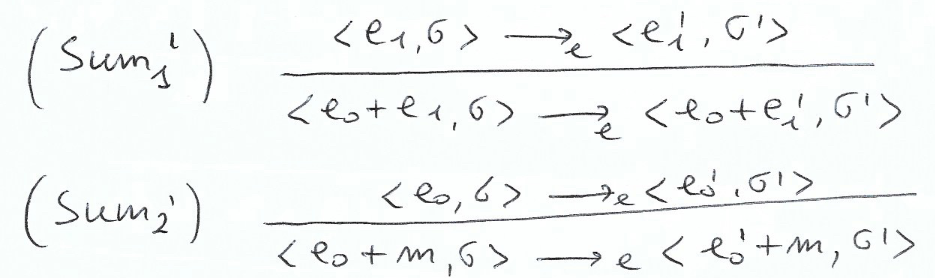 (Sum₁') <e₁, σ> →ₑ <e₁', σ'>
<e₀+e₁, σ> →ₑ <e₀+e₁', σ'>
(Sum₂') <e₀, σ> →ₑ <e₀', σ'>
<e₀+m, σ> →ₑ <e₀'+m, σ'>